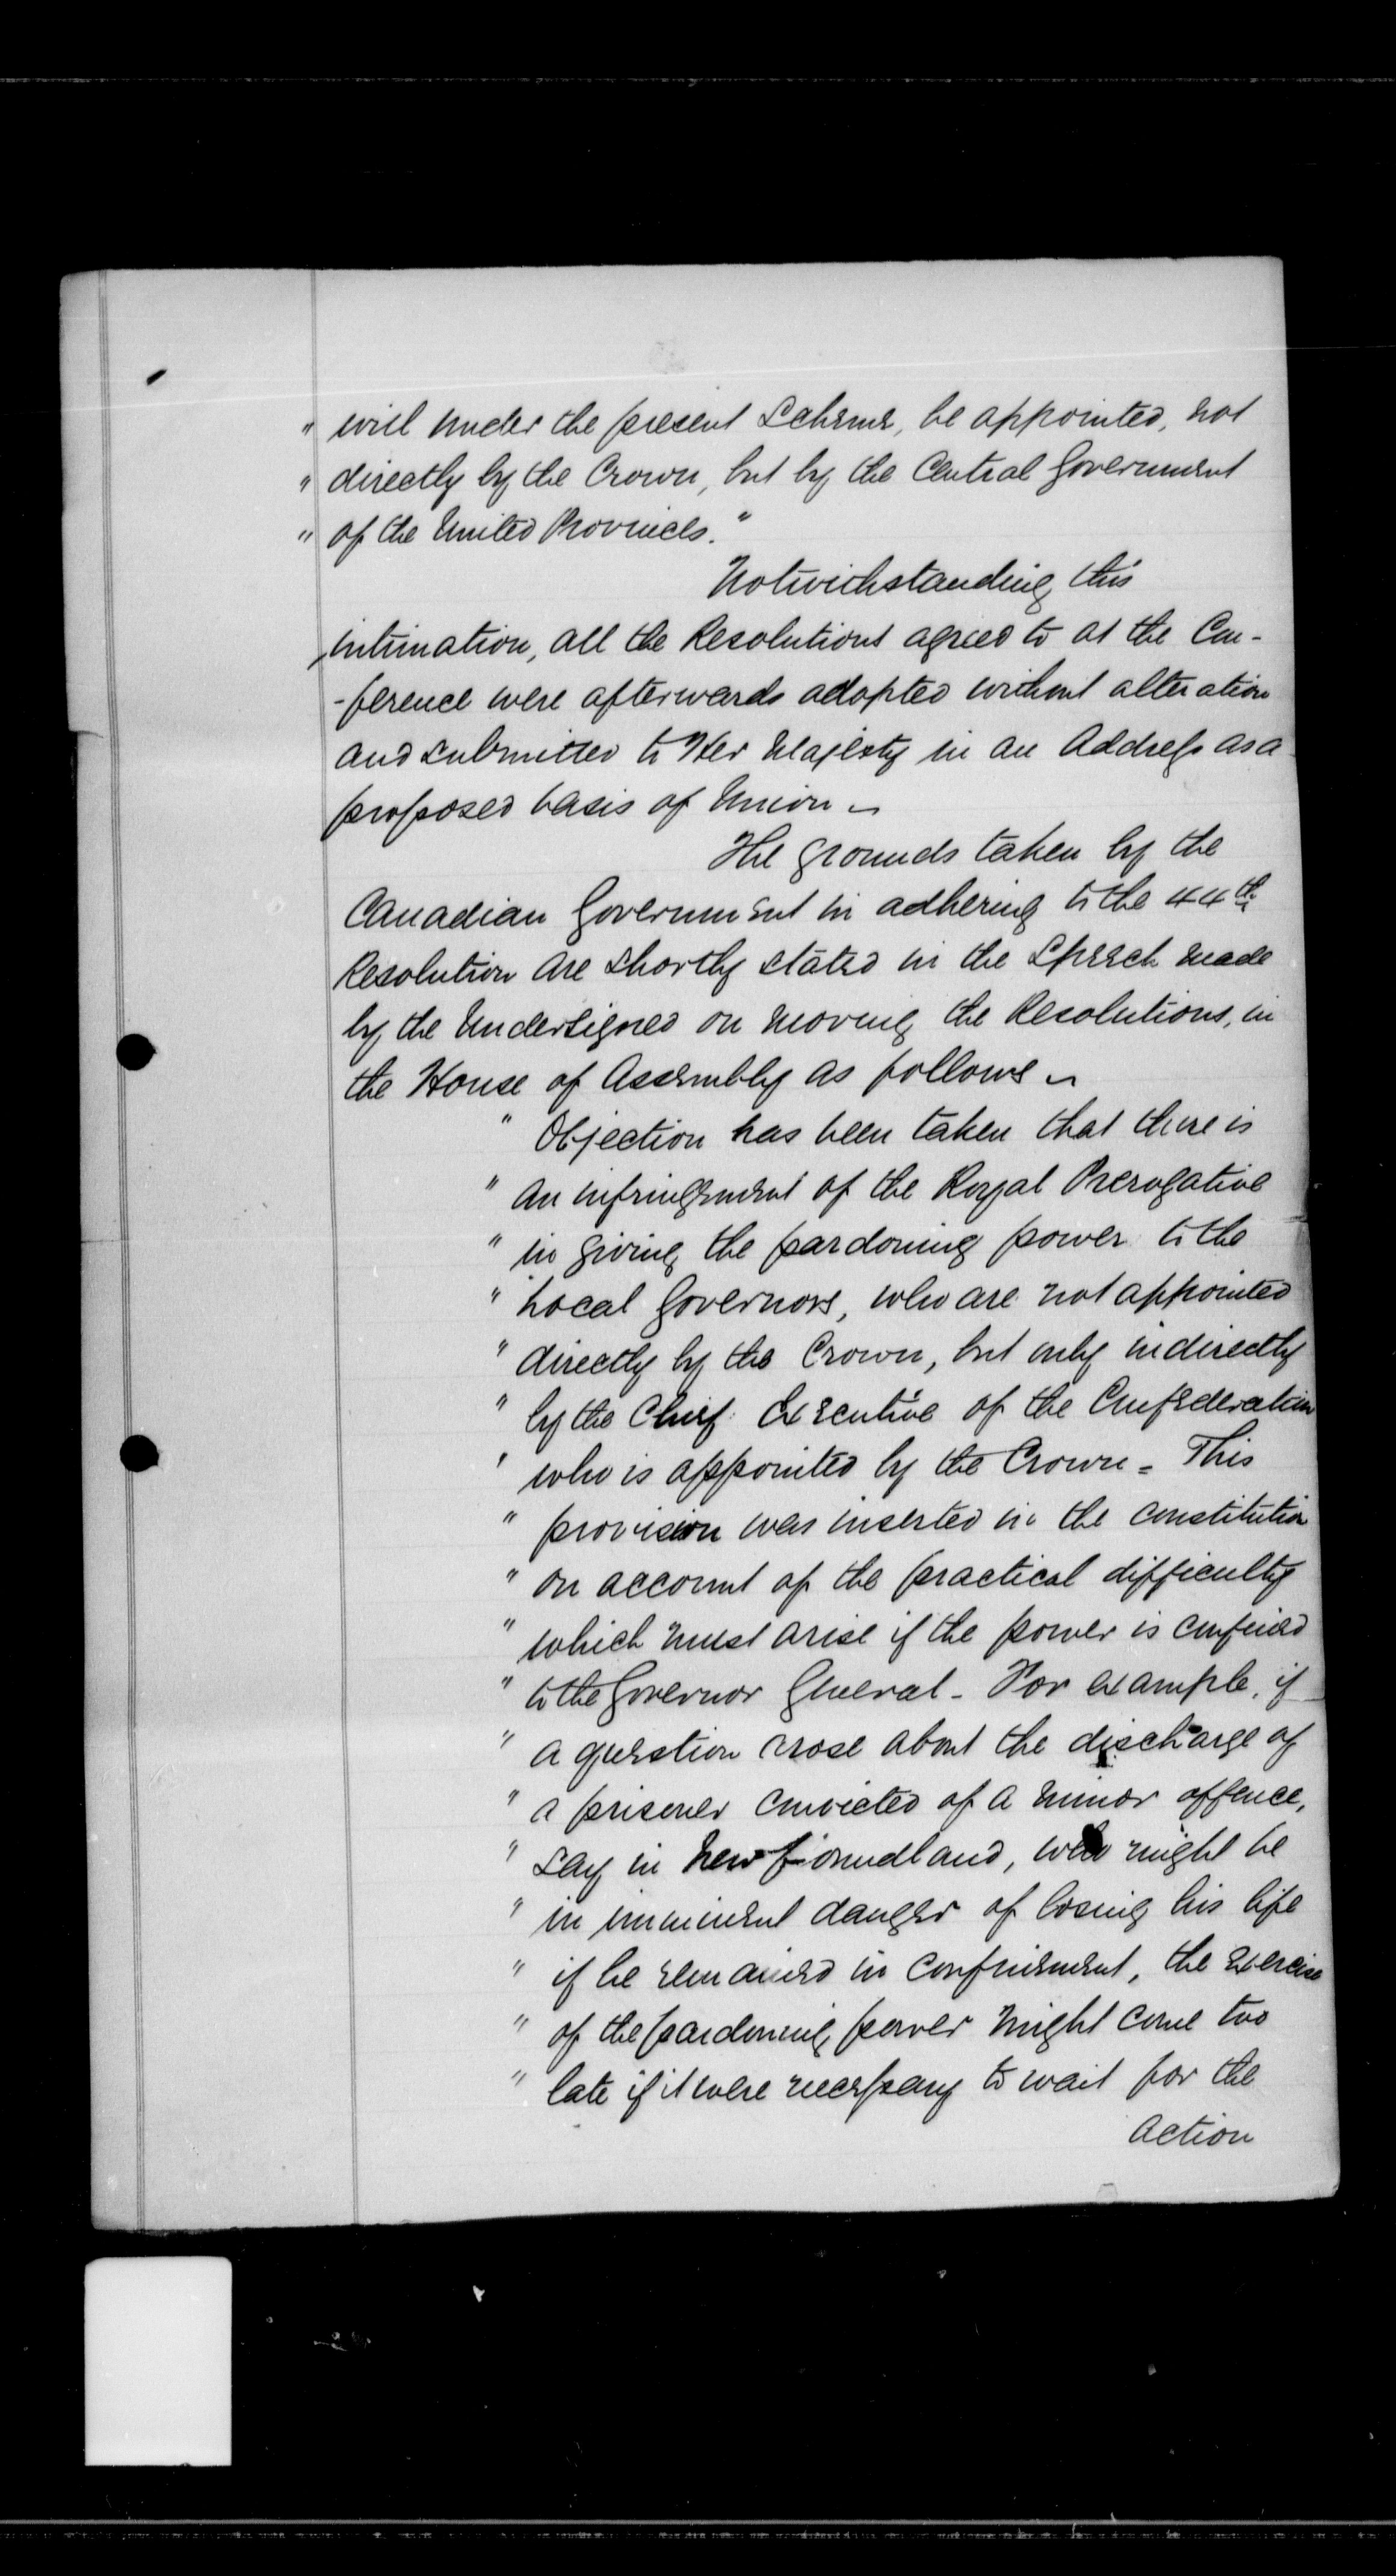 " will under the present Scheme, be appointed, not
" directly by the Crown, but by the Central Government
" of the United Provinces."
Notwithstanding this
intimation, all the Resolutions agreed to at the Con-
-ference were afterwards adopted without alteration
and submitted to Her Majesty in an Address as a
proposed basis of Union -
The grounds taken by the
Canadian Government in adhering to the 44th
Resolution are shortly stated in the Speech made
by the Undersigned on moving the Resolutions, in
the House of Assembly as follows -
" Objection has been taken that there is
" an infringement of the Royal Prerogative
" in giving the pardoning power to the
" Local Governors, who are not appointed
" directly by the Crown, but only indirectly
" by the Chief Executive of the Confederation
" who is appointed by the Crown - This
" provision was inserted in the constitution
" on account of the practical difficulty
" which must arise if the power is confined
" to the Governor General - For example, if
" a question arose about the discharge of
" a prisoner convicted of a minor offence,
" say in Newfoundland, who might be
" in imminent danger of losing his life
" if he remained in confinement, the exercise
" of the pardoning power might come too
" late if it were necessary to wait for the
action